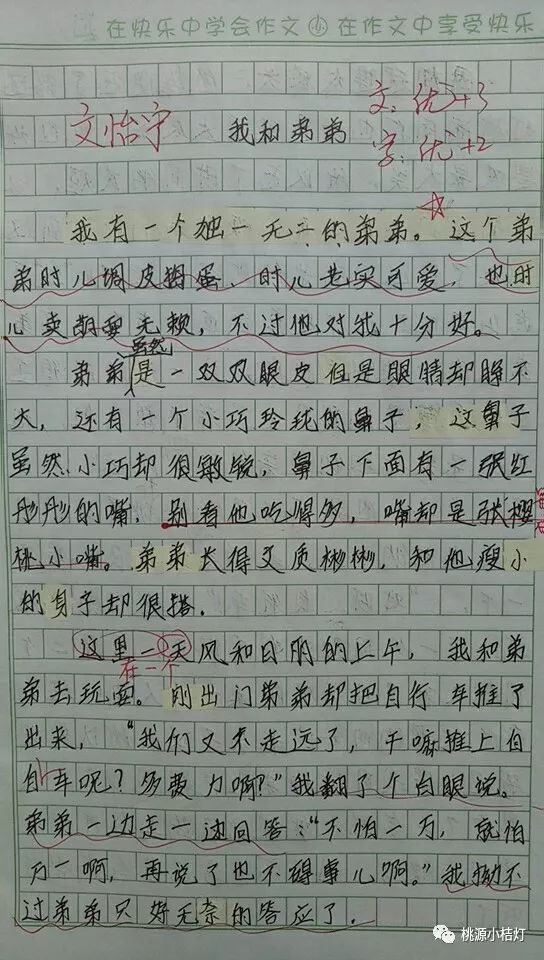 在快乐中学会作文 在作文中享受快乐
文怡宁 我和弟弟 文:优+3
字:优+2
我有一个独一无二的弟弟。这个弟
弟时儿调皮捣蛋,时儿老实可爱,也时
儿卖萌耍无赖,不过他对我十分好。
虽然
弟弟是一双双眼皮但是眼睛却睁不
大,还有一个小巧玲珑的鼻子,这鼻子
虽然小巧却很敏锐,鼻子下面有一张红
彤彤的嘴,别看他吃得多,嘴却是张樱
桃小嘴。弟弟长得文质彬彬,和他瘦小
的身子却很搭.
这里一天风和日丽的上午,我和弟
在一个
弟去玩耍。刚出门弟弟却把自行车推了
出来,“我们又不走远了,干嘛推上自
自车呢?多费力啊?”我翻了个白眼说。
弟弟一边走一边回答:“不怕一万,就怕
万一啊,再说了也不碍事儿啊。”我拗不
过弟弟只好无奈的答应了.
桃源小桔灯